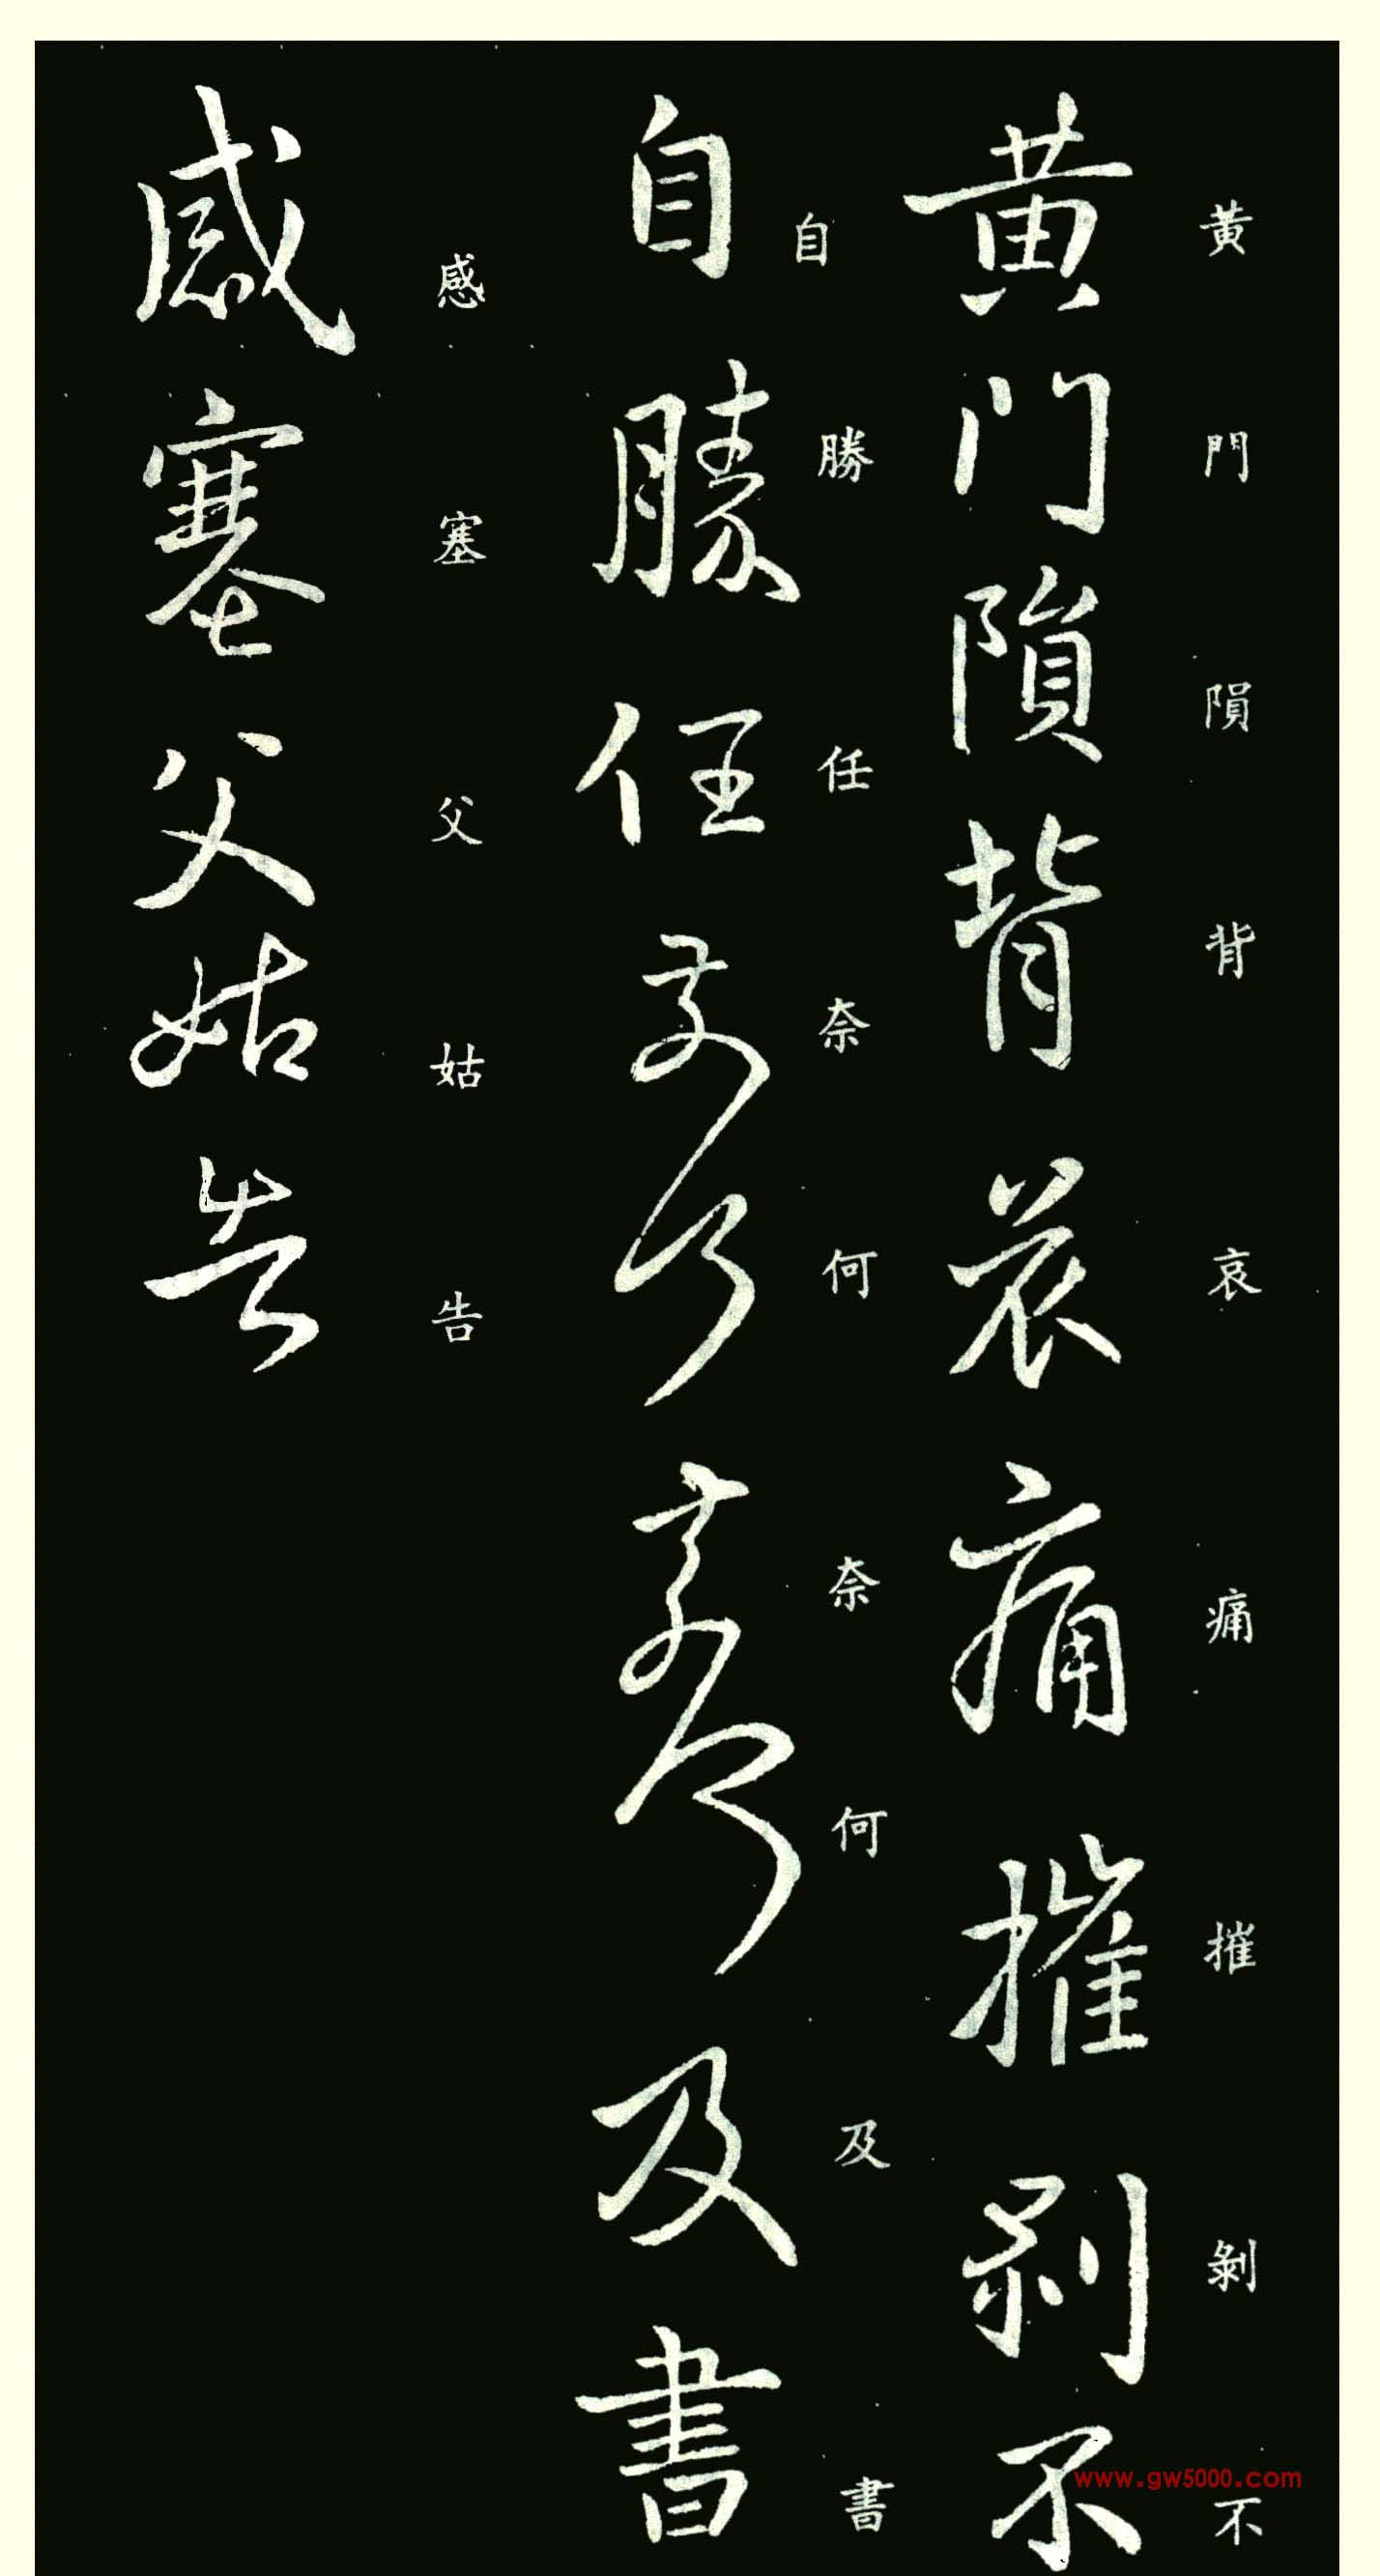 黃門隕背哀痛摧剝不
黃門隕背哀痛摧剝不
自勝任奈何奈何及書
自勝任奈何奈何及書
感塞父姑告
感塞父姑告
www.gw5000.com